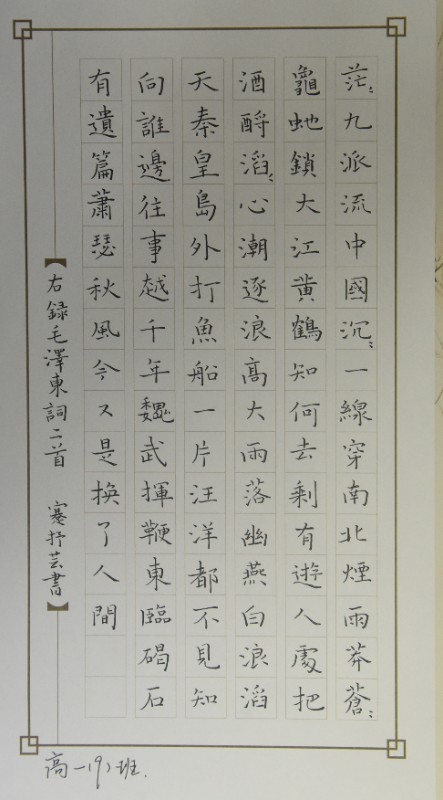 茫〻九派流中國沉〻一線穿南北煙雨莽蒼〻
龜虵鎖大江黃鶴知何去剩有遊人處把
酒酹滔〻心潮逐浪高大雨落幽燕白浪滔
天秦皇島外打魚船一片汪洋都不見知
向誰邊往事越千年魏武揮鞭東臨碣石
有遺篇蕭瑟秋風今又是換了人間
【右録毛澤東詞二首 抒芸書】
高一(9)班.